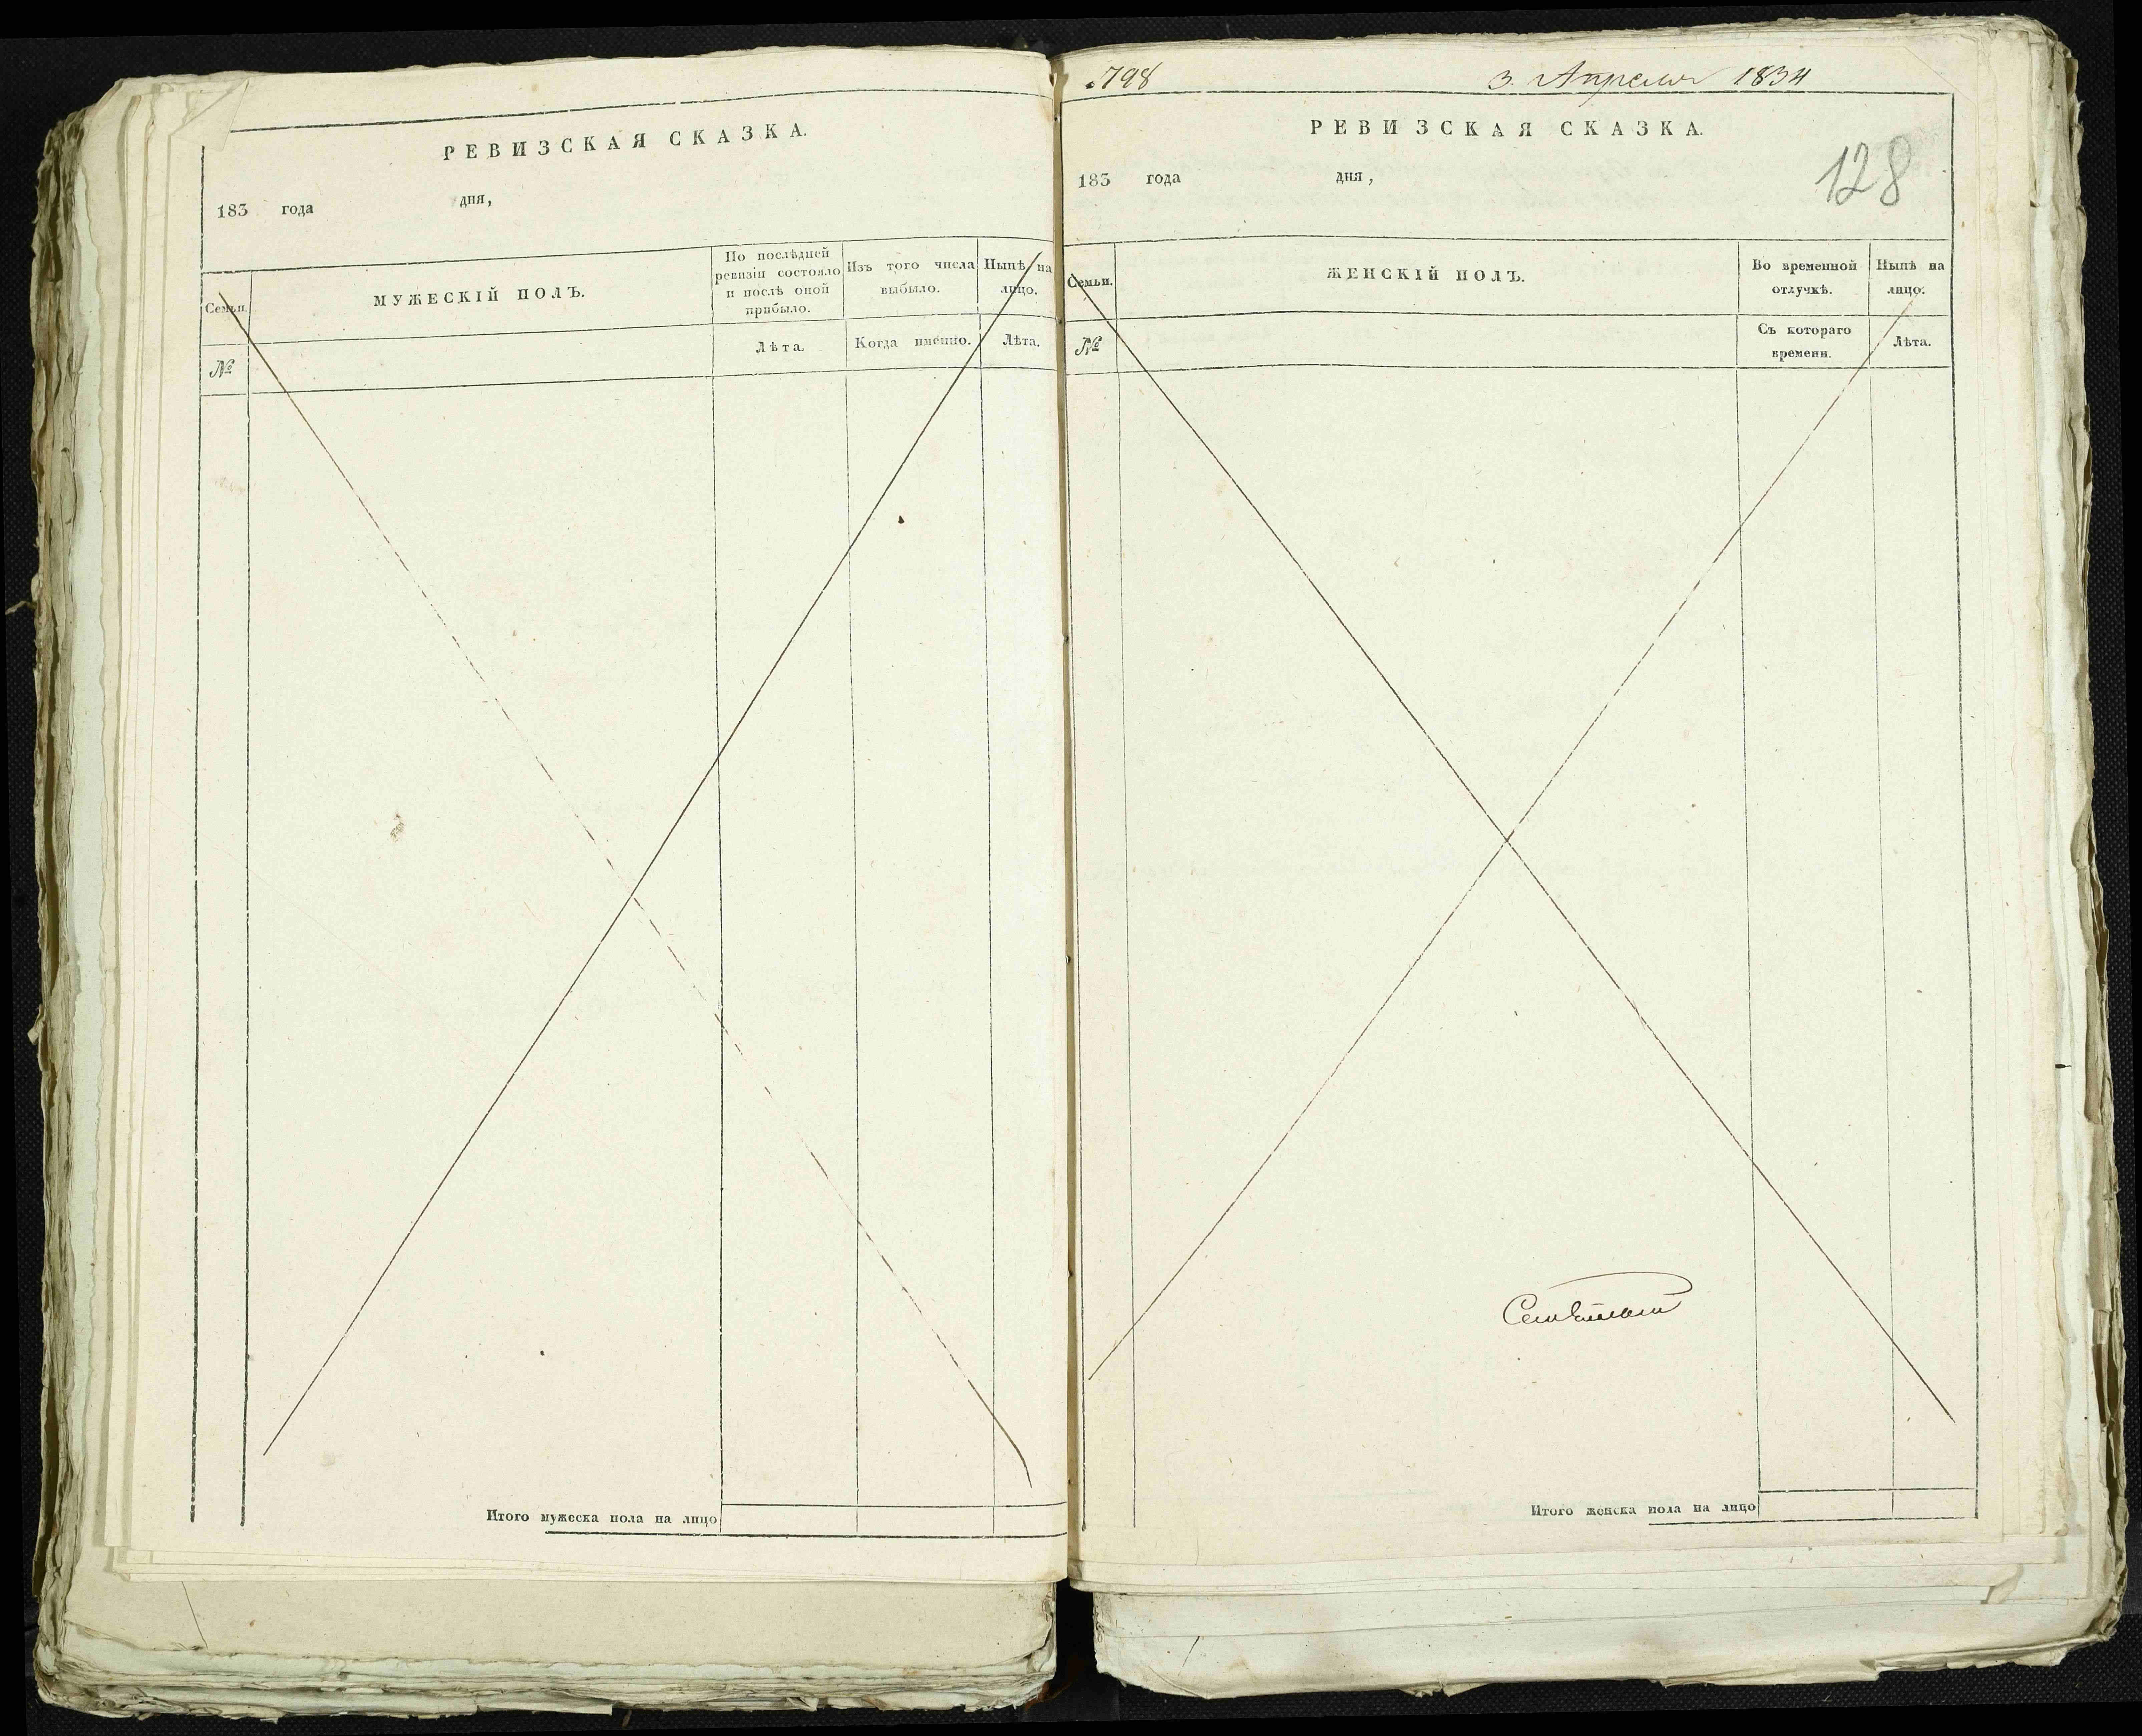 РЕВИЗСКАЯ СКАЗКА.
183 года дня,
Семьи. МУЖЕСКІЙ ПОЛЪ. По послѣдней ревизіи состояло и послѣ оной прибыло. Изъ того числа выбыло. Нынѣ на лицо.
№ Лѣта. Когда именно. Лѣта.
Итого мужеска пола на лицо
798 3. Апреля 1834
РЕВИЗСКАЯ СКАЗКА.
128
183 года дня,
Семьи. ЖЕНСКІЙ ПОЛЪ. Во временной отлучкѣ. Нынѣ на лицо.
№ Съ котораго времени. Лѣта.
Итого женска пола на лицо